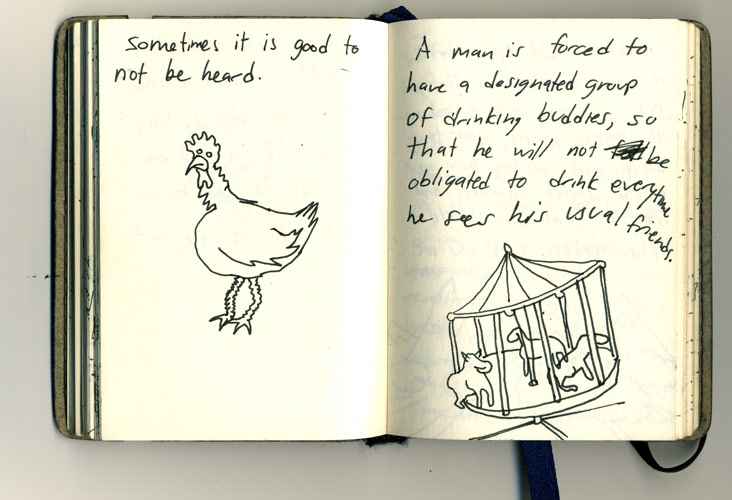 sometimes it is good to
not be heard.
A man is forced to
have a designated group
of drinking buddies, so
that he will not be
obligated to drink everytime
he sees his usual friends.